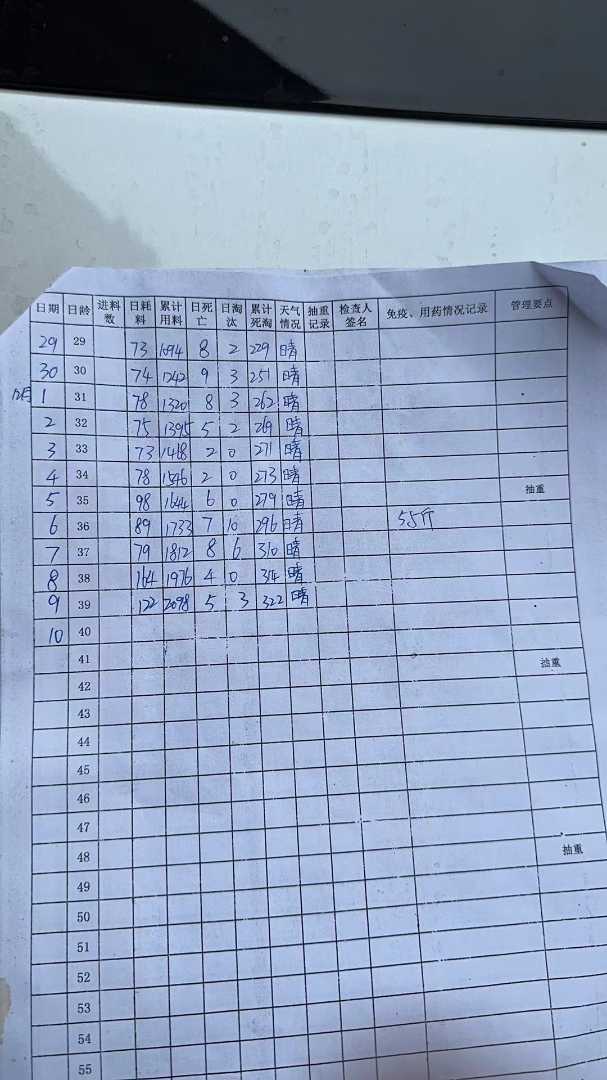 日期 日龄 进料数 日耗料 累计用料 日死亡 日淘汰 累计死淘 天气情况 抽重记录 检查人签名 免疫、用药情况记录 管理要点
29 29 73 1094 8 2 229 晴
30 30 74 1242 9 3 251 晴
12月 1 31 78 1320 8 3 262 晴
2 32 75 1395 5 2 269 晴
3 33 73 1468 2 0 271 晴
4 34 78 1546 2 0 273 晴
5 35 98 1644 6 0 279 晴 抽重
6 36 89 1733 7 10 296 晴 55斤
7 37 79 1812 8 6 310 晴
8 38 164 1976 4 0 314 晴
9 39 122 2098 5 3 322 晴
10 40
41 抽重
42
43
44
45
46
47
48 抽重
49
50
51
52
53
54
55